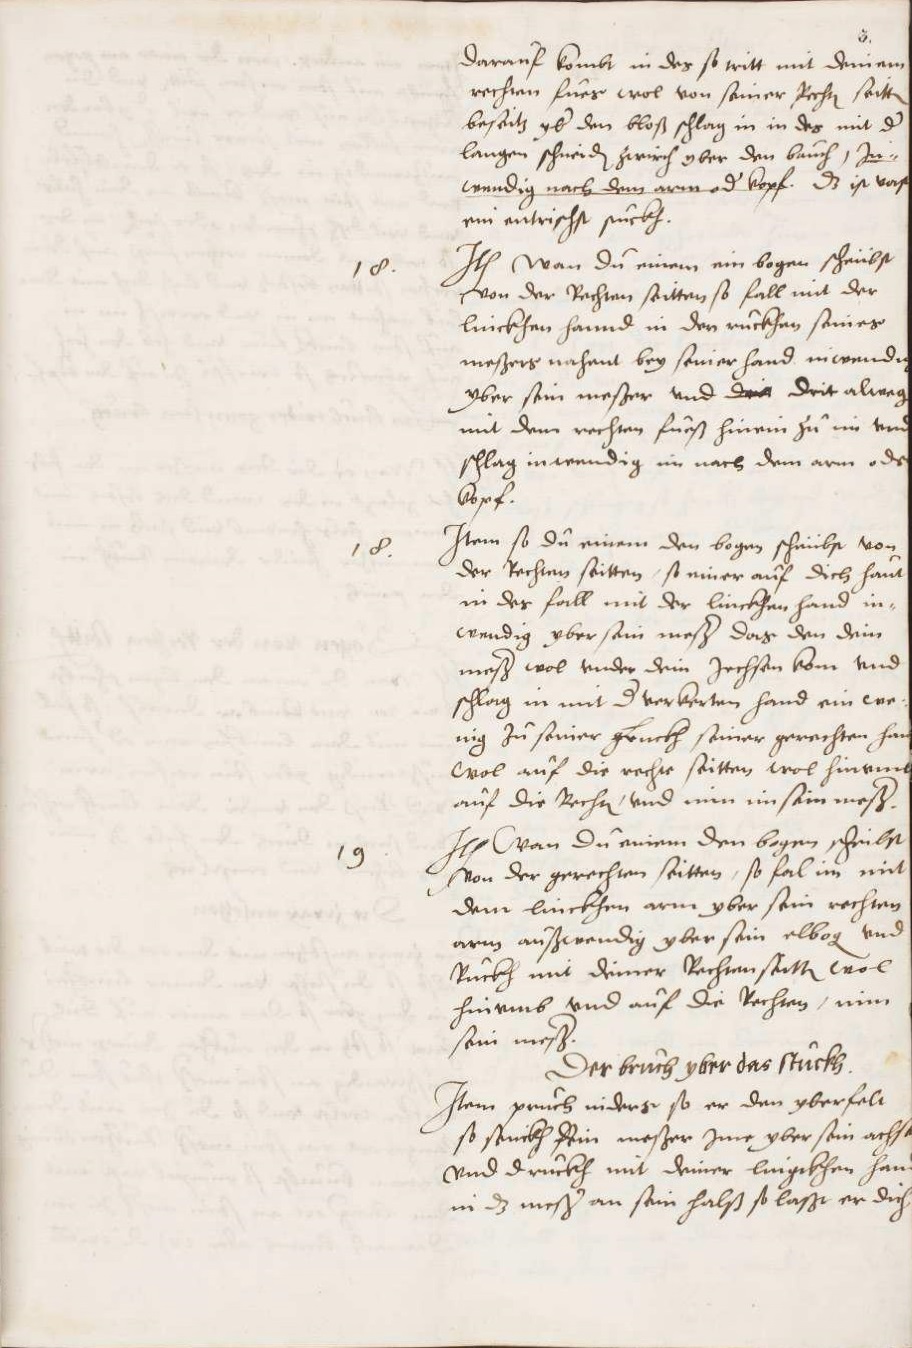 3.
darauf kombt in des so tritt mit deinem
rechten fues wol von seiner Rechtn seittn
beseitz yb den bloß schlag in in des mit d
langen schneid zwirch yber den bauch / In-
wendig nach dem arm od kopf. dz ist vast
ein entrischt stuckh.
18. Itm wan du einem ein bogen scheubst
von der Rechten seitten so fall mit der
linckhen hannd in den ruckhen seines
meßers nahent bey seiner hand inwendig
yber sein meßer vnd drit alweg
mit dem rechten fueß hinein zu im vnd
schlag inwendig im nach dem arm oder
kopf.
18. Item so du einem den bogen scheubst von
der Rechten seitten / so einer auf dich haut
in des fall mit der linckhen hand in-
wendig yber sein meß das den dein
meß wol vnder dein Jechsen kom vnd
schlag in mit d verkerten hand ein we-
nig zu seiner seiner gerechten han
wol auf die rechte seitten wol hinumb
auf die Rechtn / vnd nim im sein meß.
19 Itm Wan du einem den bogen scheibst
von der gerechten seitten / so fal im mit
dem linckhen arm yber sein rechten
arm außwendig yber sein elbog vnd
Ruckh mit deiner Rechten seittn wol
hinumb vnd auf die Rechten / nim
sein meß.
Der bruch yber das stuckh.
Item pruch niders so er den yberfelt
so senckh dein meßer Ime yber sein achsl
vnd druckh mit deiner lingkhen hand
in dz meß an sein halß so lasst er dich